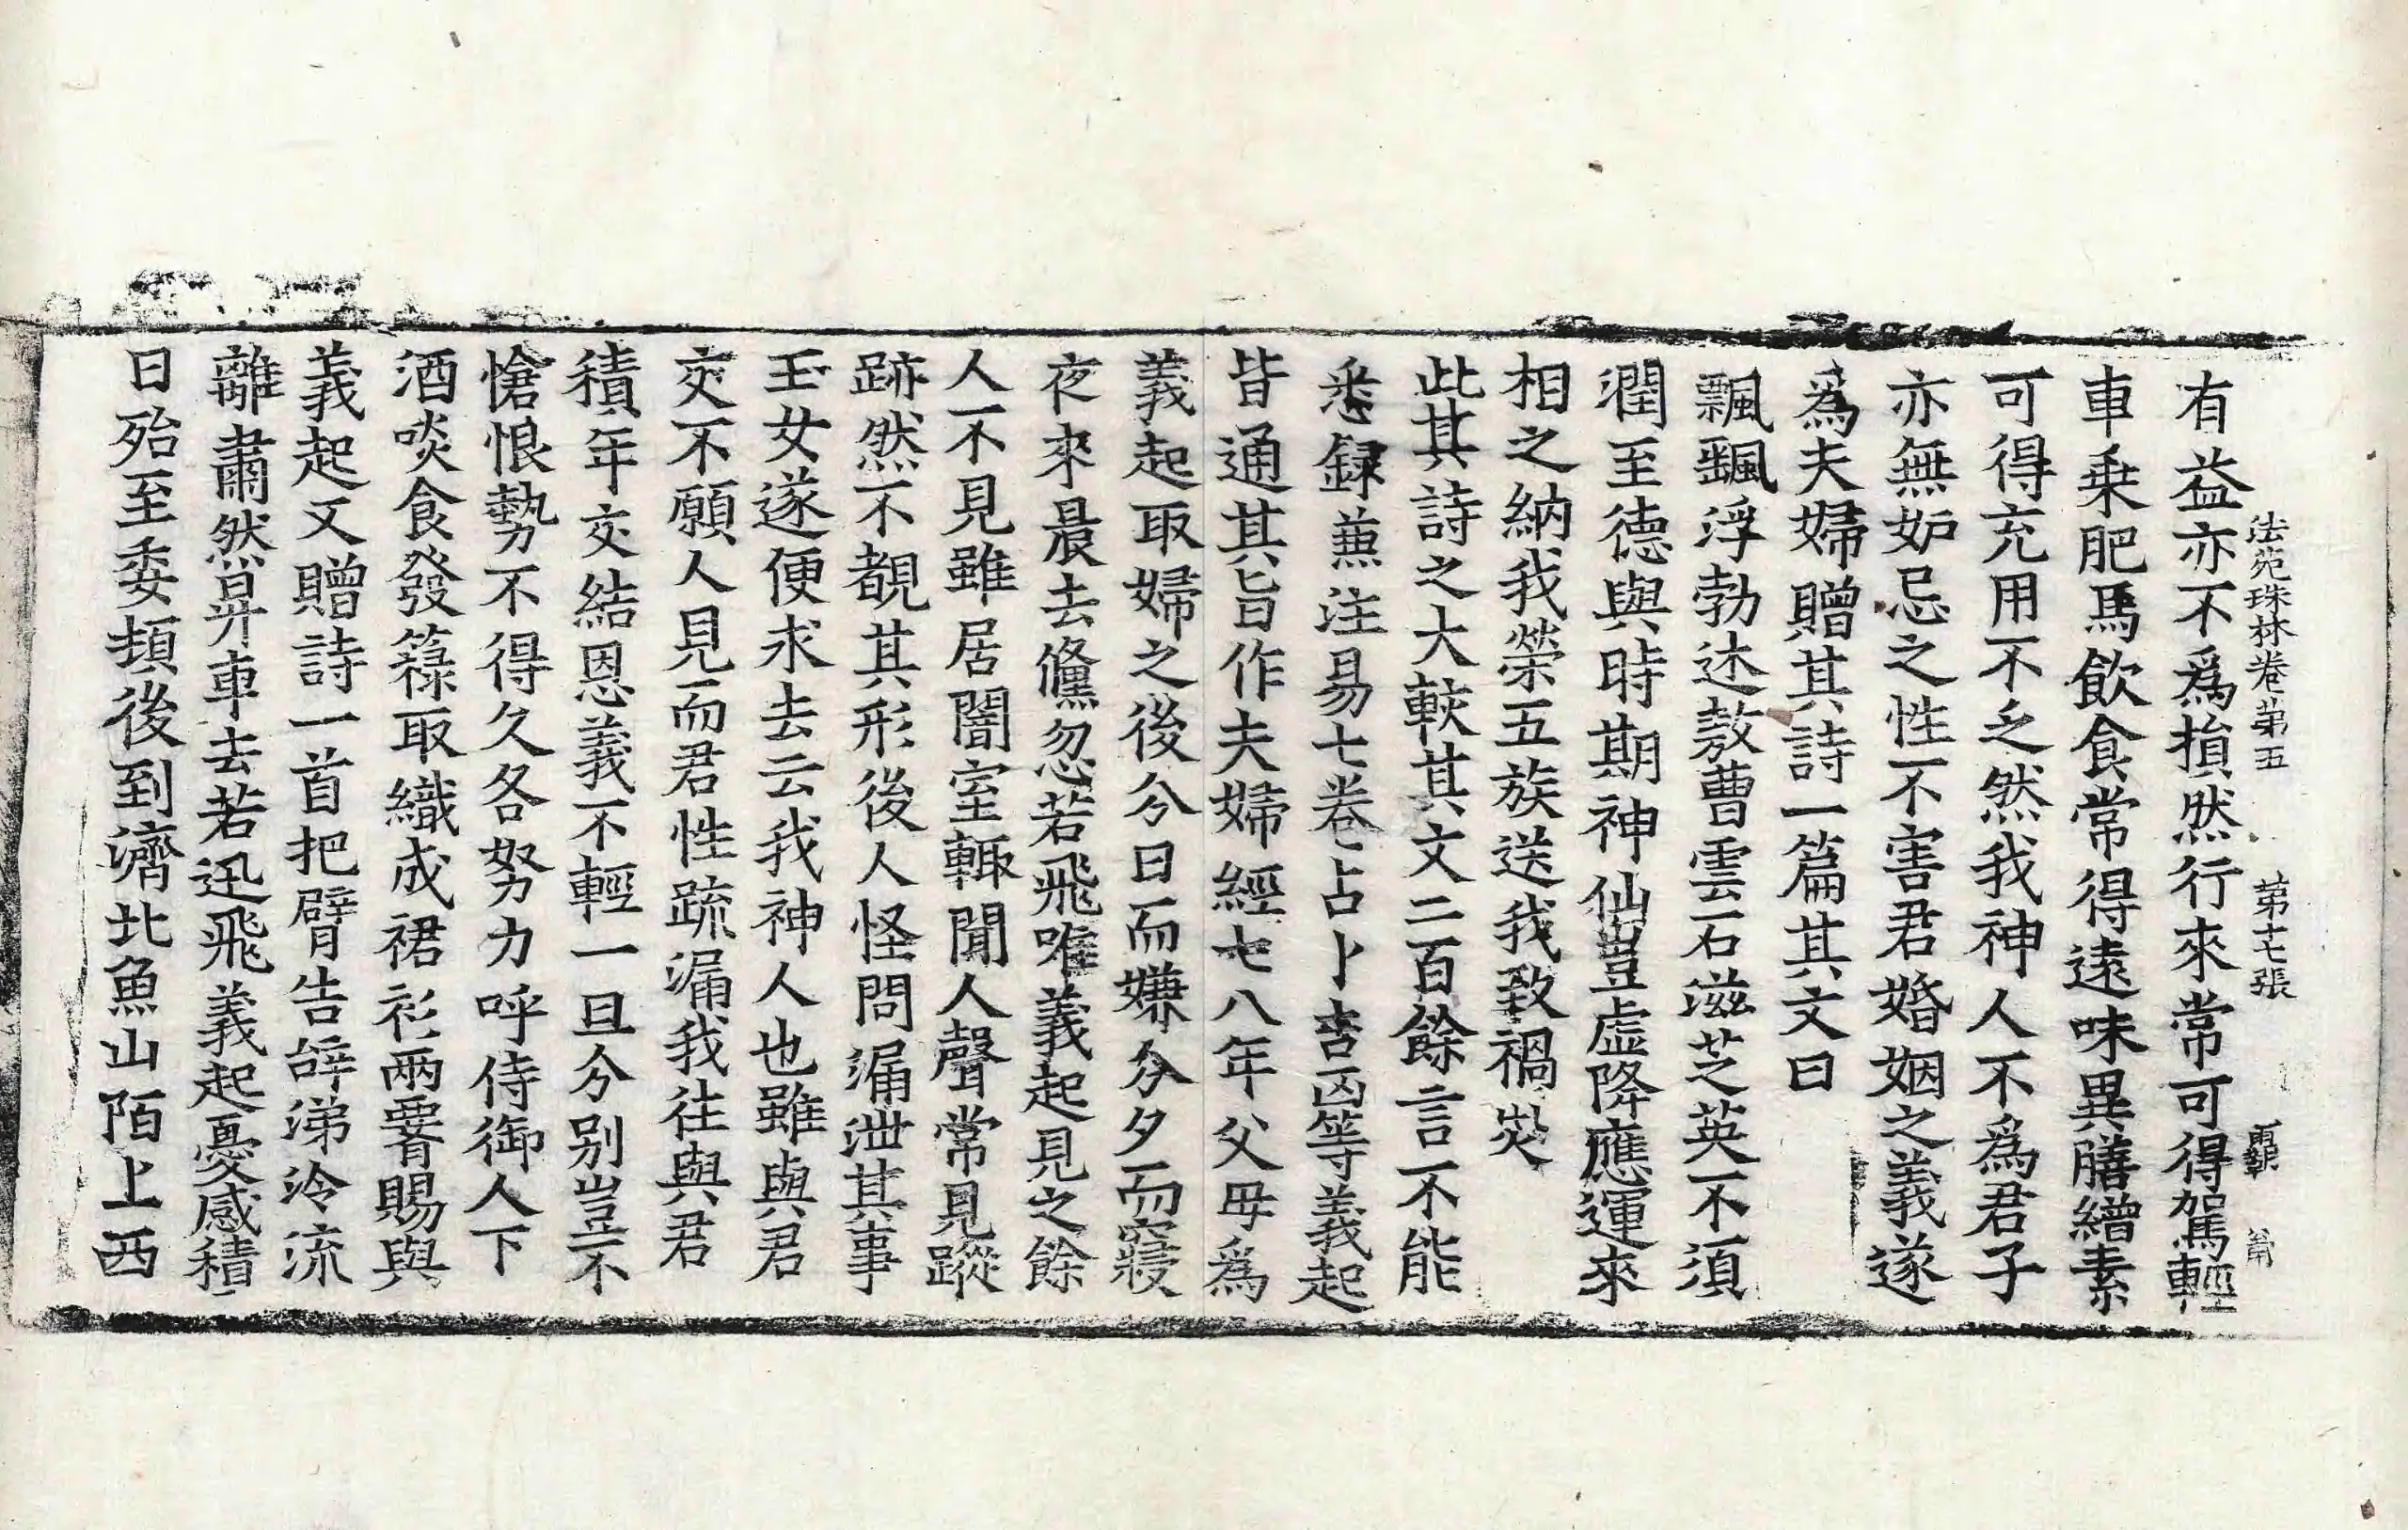 法苑珠林卷第五　第十七張　覇
有益亦不爲損然行來常可得駕輕
車乗肥馬飮食常得遠味異膳繒素
可得充用不乏然我神人不爲君子
亦無妒忌之性不害君婚姻之義遂
爲夫婦贈其詩一篇其文曰
飄颻浮勃述敖曹雲石滋芝英不須
潤至德與時期神仙豈虛降應運來
相之納我榮五族送我致禍災
此其詩之大較其文二百餘言不能
悉録兼注易七卷占卜吉凶等義起
皆通其旨作夫婦經七八年父母爲
義起取婦之後分日而嫌分夕而寢
夜來晨去儵忽若飛唯義起見之餘
人不見雖居闇室輙聞人聲常見蹤
跡然不覩其形後人怪問漏泄其事
玉女遂便求去云我神人也雖與君
交不願人見而君性疏漏我往與君
積年交結恩義不輕一旦分别豈不
愴恨勢不得久各努力呼侍御人下
酒啖食發簶取織成裙衫兩䙅賜與
義起又贈詩一首把臂告辝涕泠流
離肅然昇車去若迅飛義起憂感積
日殆至委頓後到濟北魚山陌上西